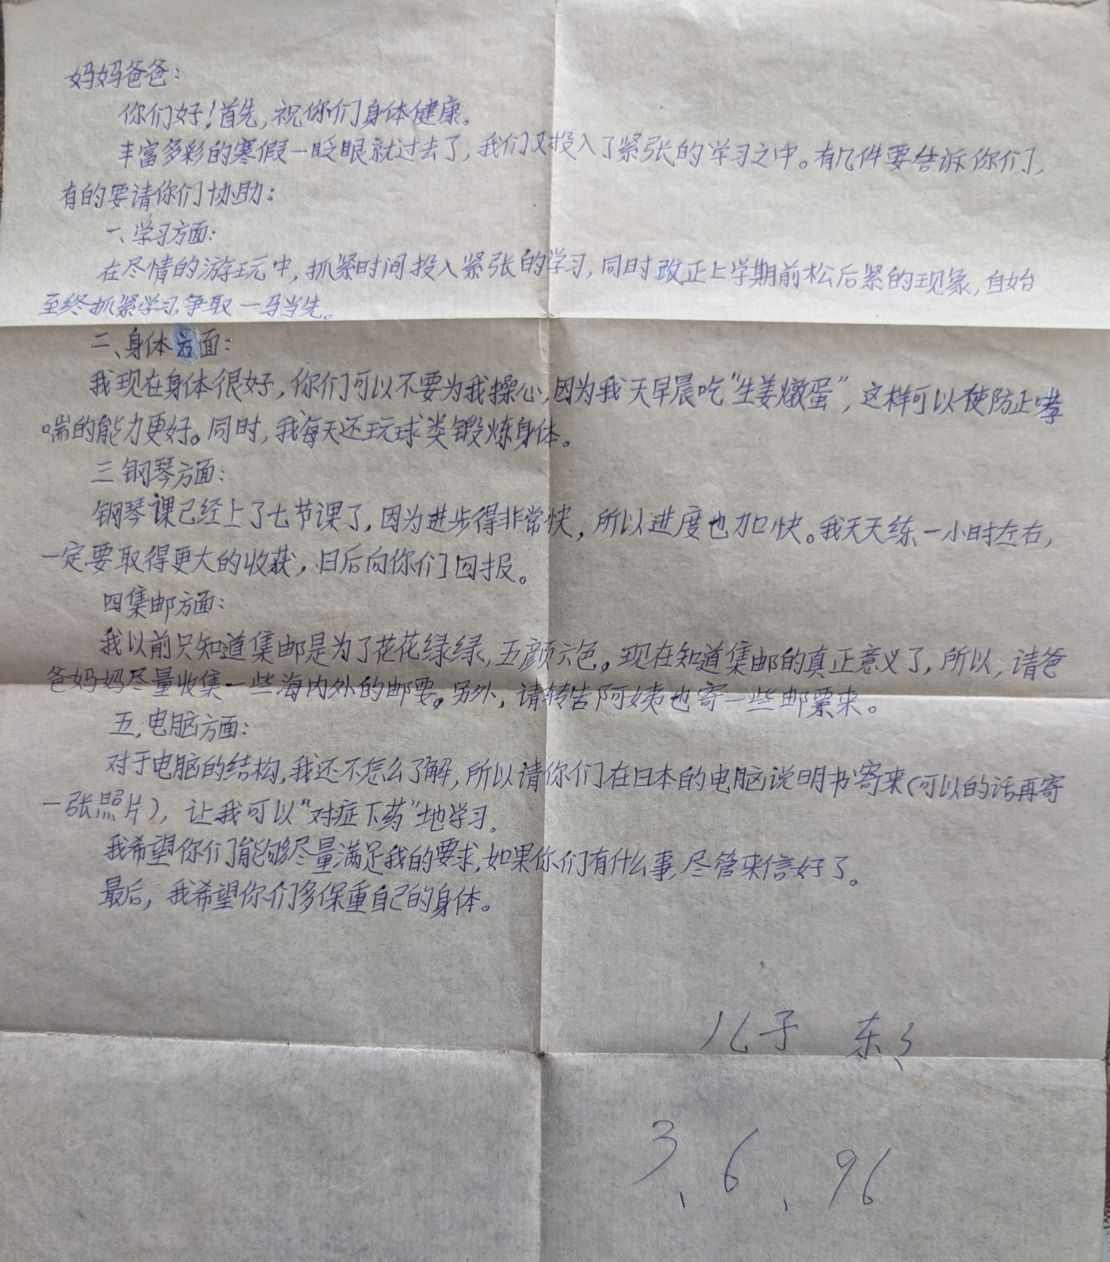 妈妈爸爸：
你们好！首先，祝你们身体健康。
丰富多彩的寒假一眨眼就过去了，我们又投入了紧张的学习之中。有几件要告诉你们，
有的要请你们协助：
一、学习方面：
在尽情的游玩中，抓紧时间投入紧张的学习，同时改正上学期前松后紧的现象，自始
至终抓紧学习，争取一马当先。
二、身体方面：
我现在身体很好，你们可以不要为我操心，因为我天早晨吃“生姜燉蛋”，这样可以使防止哮
喘的能力更好。同时，我每天还玩球类锻炼身体。
三钢琴方面：
钢琴课已经上了七节课了，因为进步得非常快，所以进度也加快。我天天练一小时左右，
一定要取得更大的收获，日后向你们回报。
四集邮方面：
我以前只知道集邮是为了花花绿绿，五颜六色。现在知道集邮的真正意义了，所以，请爸
爸妈妈尽量收集一些海内外的邮票。另外，请转告阿姨也寄一些邮票来。
五，电脑方面：
对于电脑的结构，我还不怎么了解，所以请你们在日本的电脑说明书寄来（可以的话再寄
一张照片），让我可以“对症下药”地学习。
我希望你们能够尽量满足我的要求，如果你们有什么事，尽管来信好了。
最后，我希望你们多保重自己的身体。
儿子 东东
3、6、96